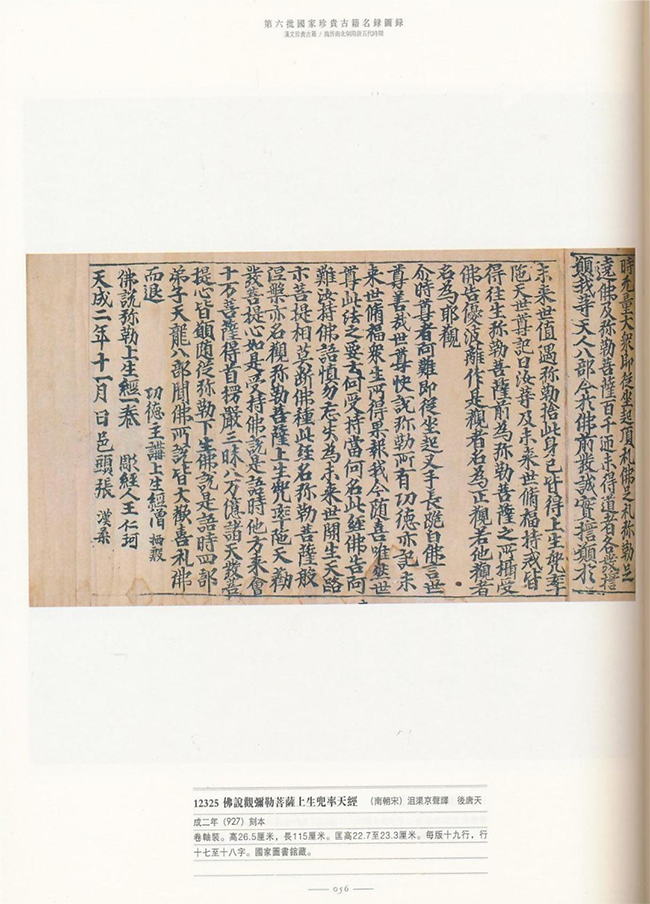 第六批國家珍貴古籍名錄圖錄
漢文珍貴古籍 / 魏晋南北朝隋唐五代時期
時无量大衆即從坐起頂礼佛足礼弥勒足
遶佛及弥勒菩薩百千迊未得道者各發擔
願我等天人八部今於佛前發誠實擔願於
未来世值遇弥勒捨此身已皆得上生兜率
陁天世尊記曰汝等及未来世脩福持戒皆
得往生弥勒菩薩前為弥勒菩薩之所攝受
佛告優波離作是觀者名為正觀若他觀者
名為耶觀
尒時尊者阿難即從坐起叉手長跪白佛言世
尊善哉世尊快說弥勒所有功德亦記未
来世脩福衆生所得果報我今隨喜唯然世
尊此法之要云何受持當何名此經佛告阿
難汝持佛語慎勿忘失為未来世開生天路
示菩提相莫断佛種此經名弥勒菩薩般
涅槃亦名觀弥勒菩薩上生兜率陁天勸
發菩提心如是受持佛說是語時他方来會
十万菩薩得首楞嚴三昧八万億諸天發菩
提心皆願隨從弥勒下生佛說是語時四部
弟子天龍八部聞佛所說皆大歡喜礼佛
而退
功德主講上生經僧 栖殷
佛說弥勒上生經一卷 彫經人王仁珂
天成二年十一月 日邑頭張 漢柔
12325 佛說觀彌勒菩薩上生兜率天經 （南朝宋）沮渠京聲譯 後唐天
成二年（927）刻本
卷軸裝。高26.5厘米，長115厘米。匡高22.7至23.3厘米。每版十九行，行
十七至十八字。國家圖書館藏。
056